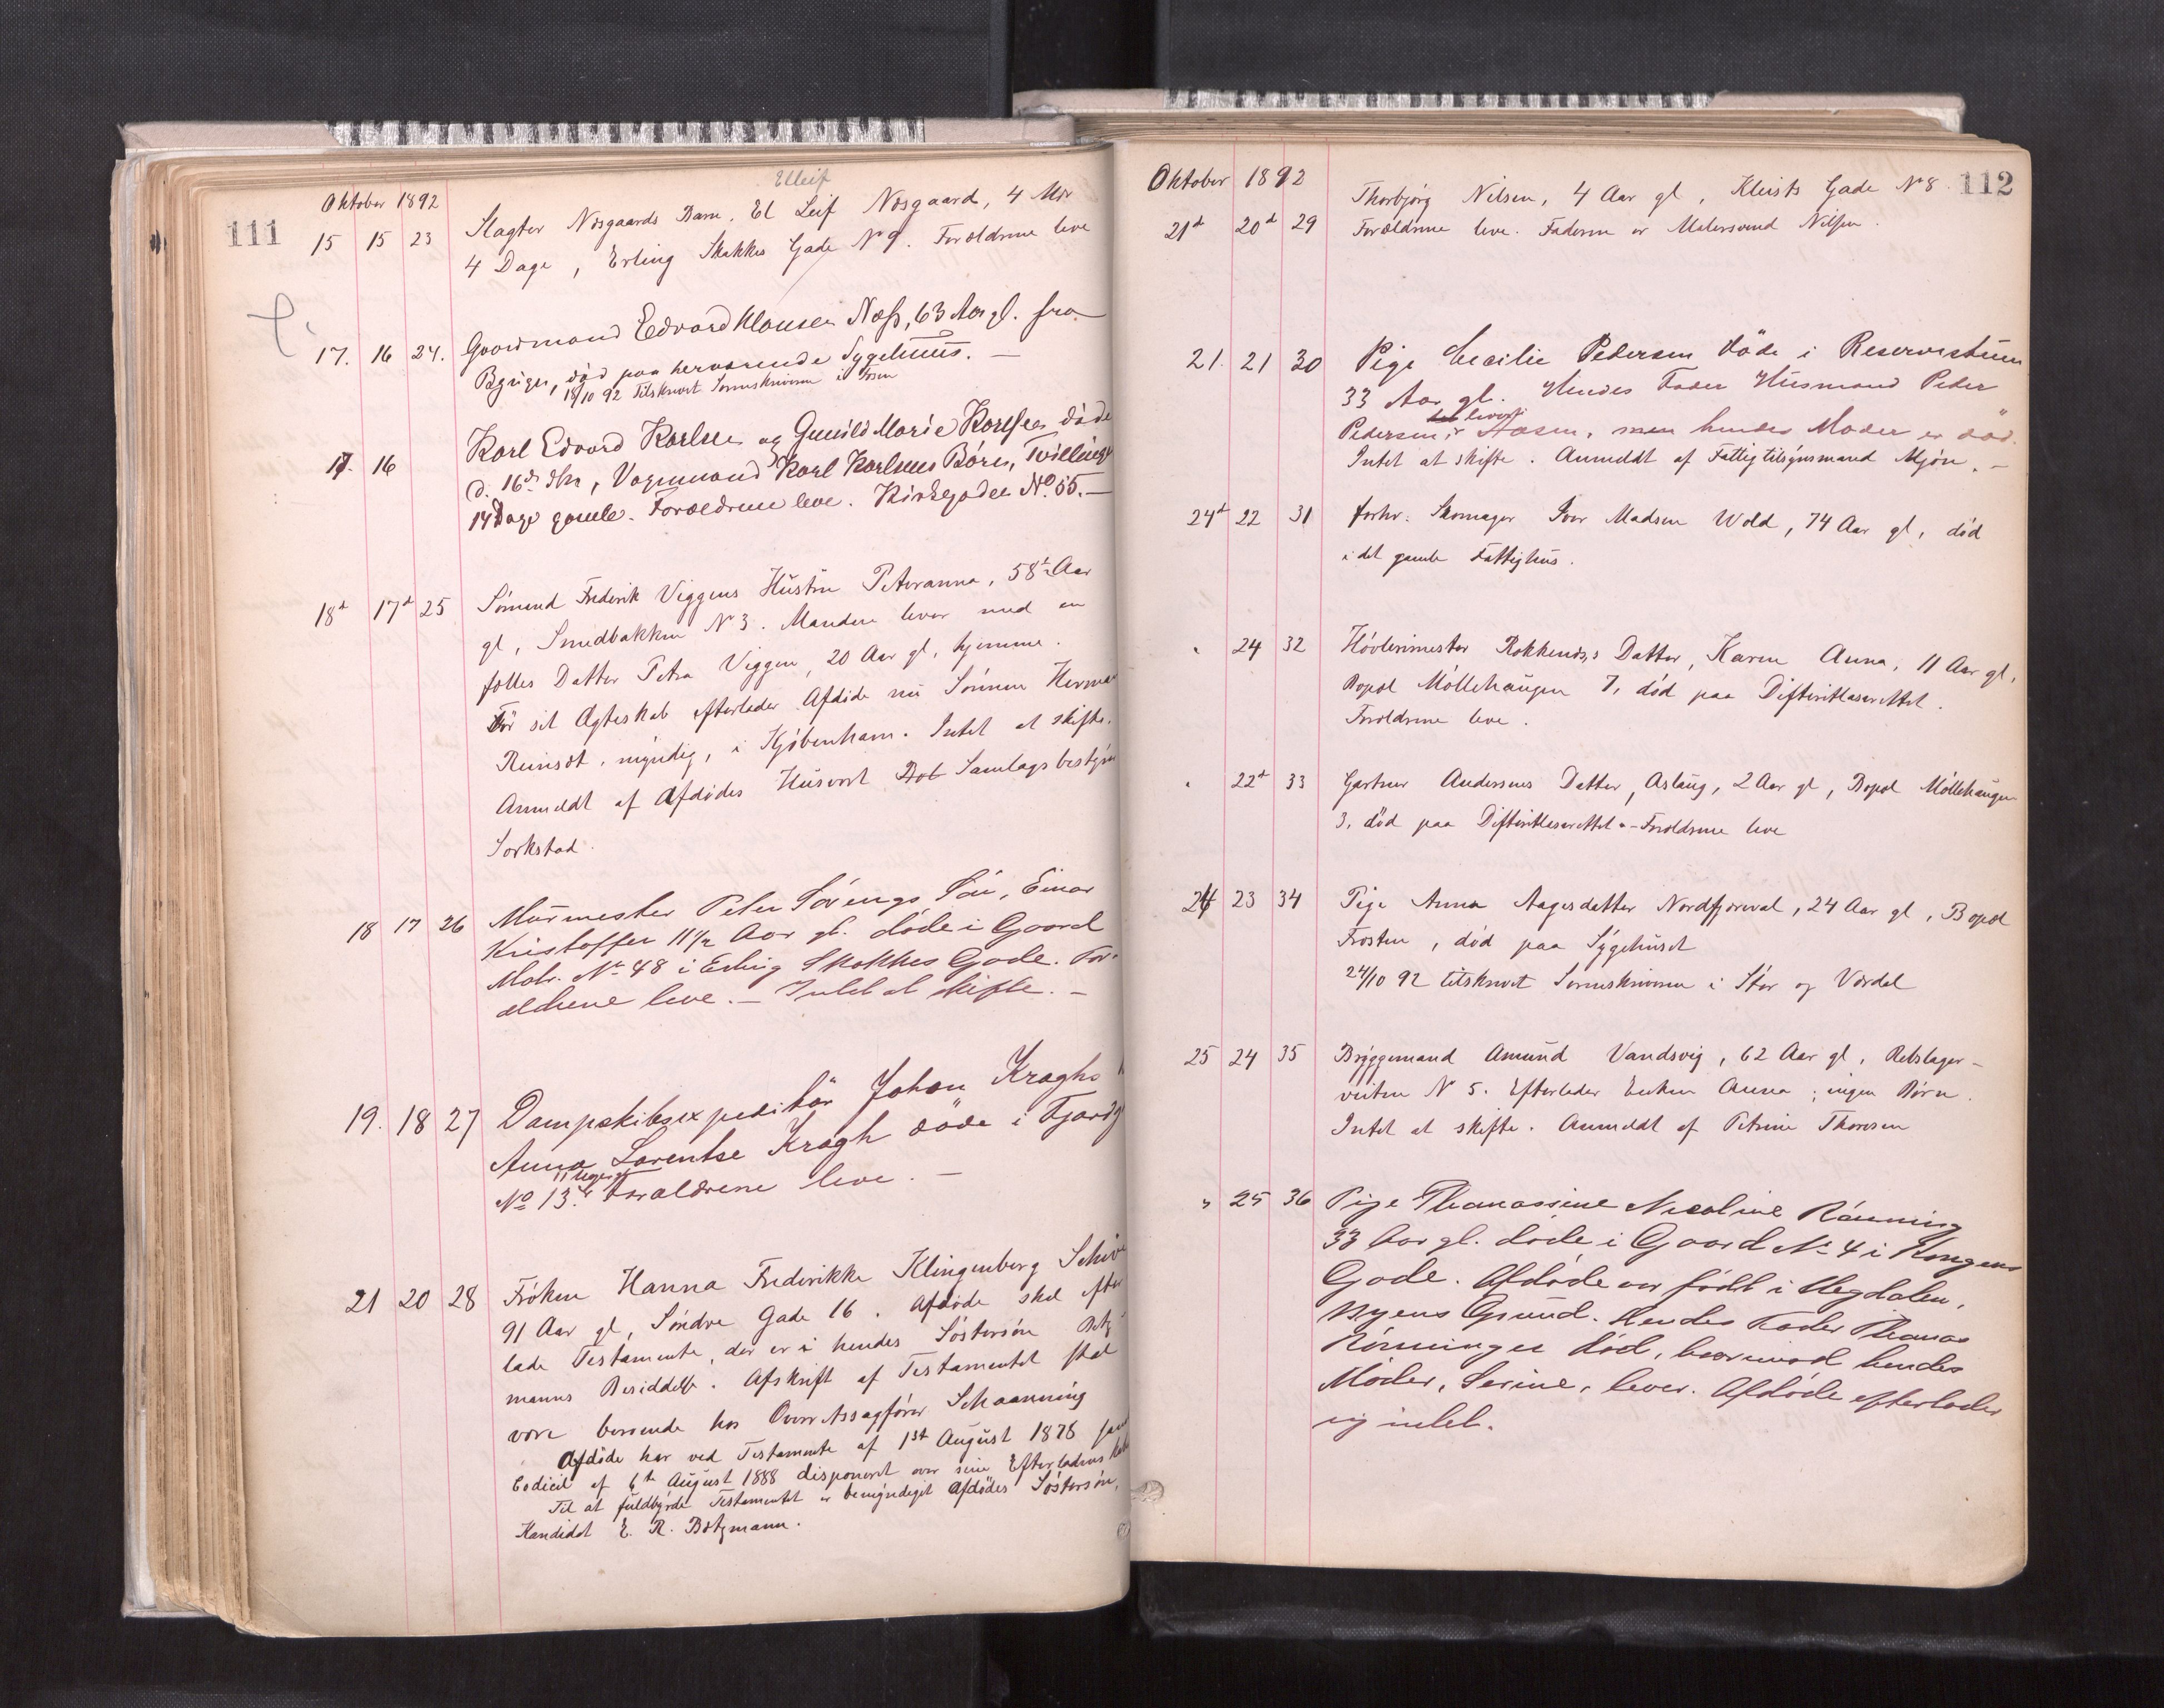 111
Oktober 1892
Elleif
15 15 23 Slagter Næsgaards Barn, El Leif Næsgaard, 4 Mdr
4 Dage, Erling Skakkes Gade № 9. Forældrene leve
17. 16 24. Gaardmand Edvard Klausen Næss, 63 Aar gl. fra
død paa herværende Sygehuus. —
18/10 92 Tilskrevet Sorenskriveren i Fosen
17. 16 Karl Edvard Karlsen og Gunild Marie Karlsen døde
d. 16de ds, Vognmand Karl Karlsens Børn, Tvillinger
14 Dage gamle. Forældrene leve. Kirkegaden No. 55. —
18d 17d 25 Sömand Frederik Viggens Hustru Peteranna, 58 Aar
gl, Smedbakken № 3. Manden lever med en
fælles Datter Petra Viggen, 20 Aar gl, hjemme.
Før sit Ægteskab efterlader Afdöde en Sönnen Herman
myndig, i Kjøbenhavn. Intet at skifte.
Anmeldt af Afdødes Husvert Samlagsbestyrer
Sorkstad.
18 17 26 Murmester Peter Sörengs Sön, Einar
Kristoffer 11½ Aar gl. døde i Gaard
Matr. № 48 i Erling Skakkes Gade. For-
ældrene leve. — Intet at skifte. —
19. 18 27 Dampskibsexpeditör Johan Kraghs
Anna Larentse Kragh döde i Fjordg
11 Uger gl
No 13. Forældrene leve. —
21 20 28 Frøken Hanna Frederikke Klingenberg
91 Aar gl, Søndre Gade 16. Afdøde skal efter
lade Testamente, der er i hendes Søstersøn Betz-
manns Besiddelse. Afskrift af Testamentet skal
være beroende hos Overretssagfører Schaanning
Afdöde har ved Testamente af 1st August 1878 samt
Codicil af 6te August 1888 disponeret over sine Efterladenskaber
Til at fuldbyrde Testamentet er bemyndiget Afdødes Søstersøn,
Kandidat E. R. Botzmann.
112
Oktober 1892
21d 20d 29 Thorbjørg Nilsen, 4 Aar gl, Kleists Gade № 8.
Forældrene leve. Faderen er Malersvend Nilsen.
21. 21 30 Pige Cecilie Pedersen döde i Reservestuen
33 Aar gl. Hendes Fader Husmand Peder
lever i
Pedersen, Aasen, men hendes Moder er död.
Intet at skifte. Anmeldt af Fattigtilsynsmand Mjøn. —
24d 22 31 forhv. Skomager Iver Madsen Wold, 74 Aar gl, död
i det gamle Fattighus.
" 24 32 Høvlerimester Rokkenes's Datter, Karen Anna, 11 Aar gl,
Bopæl Møllehaugen 7, død paa Difteritlasarettet.
Forældrene leve.
" 22d 33 Gartner Andersens Datter, Aslaug, 2 Aar gl, Bopæl Møllehaugen
3, död paa Difteritlasarettet. — Forældrene leve
24 23 34 Pige Anna Aagesdatter Nordfjæreval, 24 Aar gl, Bopæl
Frosten, død paa Sygehuset
24/10 92 tilskrevet Sorenskriveren i Stør og Værdal
25 24 35 Bryggemand Amund Vandsvig, 62 Aar gl, Rebslager-
veiten № 5. Efterlader Enken Anna; ingen Børn.
Intet at skifte. Anmeldt af Petrine Thoresen
" 25 36 Pige Thanassine Nicoline Rönning
33 Aar gl. døde i Gaard № 4 i Kongens
Gade. Afdøde er født i Ilegdalen,
Byens Grund. Hendes Fader Thanas
Rønning er död, hvorimod hendes
Moder, Serine, lever. Afdøde efterlader
sig intet.